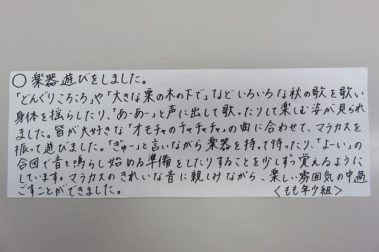 ○楽器遊びをしました。
「どんぐりころころ」や「大きな栗の木の下で」などいろいろな秋の歌を歌い
身体を揺らしたり、「あーあー」と声に出して歌ったりして楽しむ姿が見られ
ました。皆が大好きな「オモチャのチャチャチャ」の曲に合わせて、マラカスを
振って遊びました。「ぎゅー」と言いながら楽器を持って待ったり、「よーい」の
合図で音を鳴らし始める準備をしたりすることを少しずつ覚えるように
しています。マラカスのきれいな音に親しみながら、楽しい雰囲気の中過
ごすことができました。
〈もも年少組〉